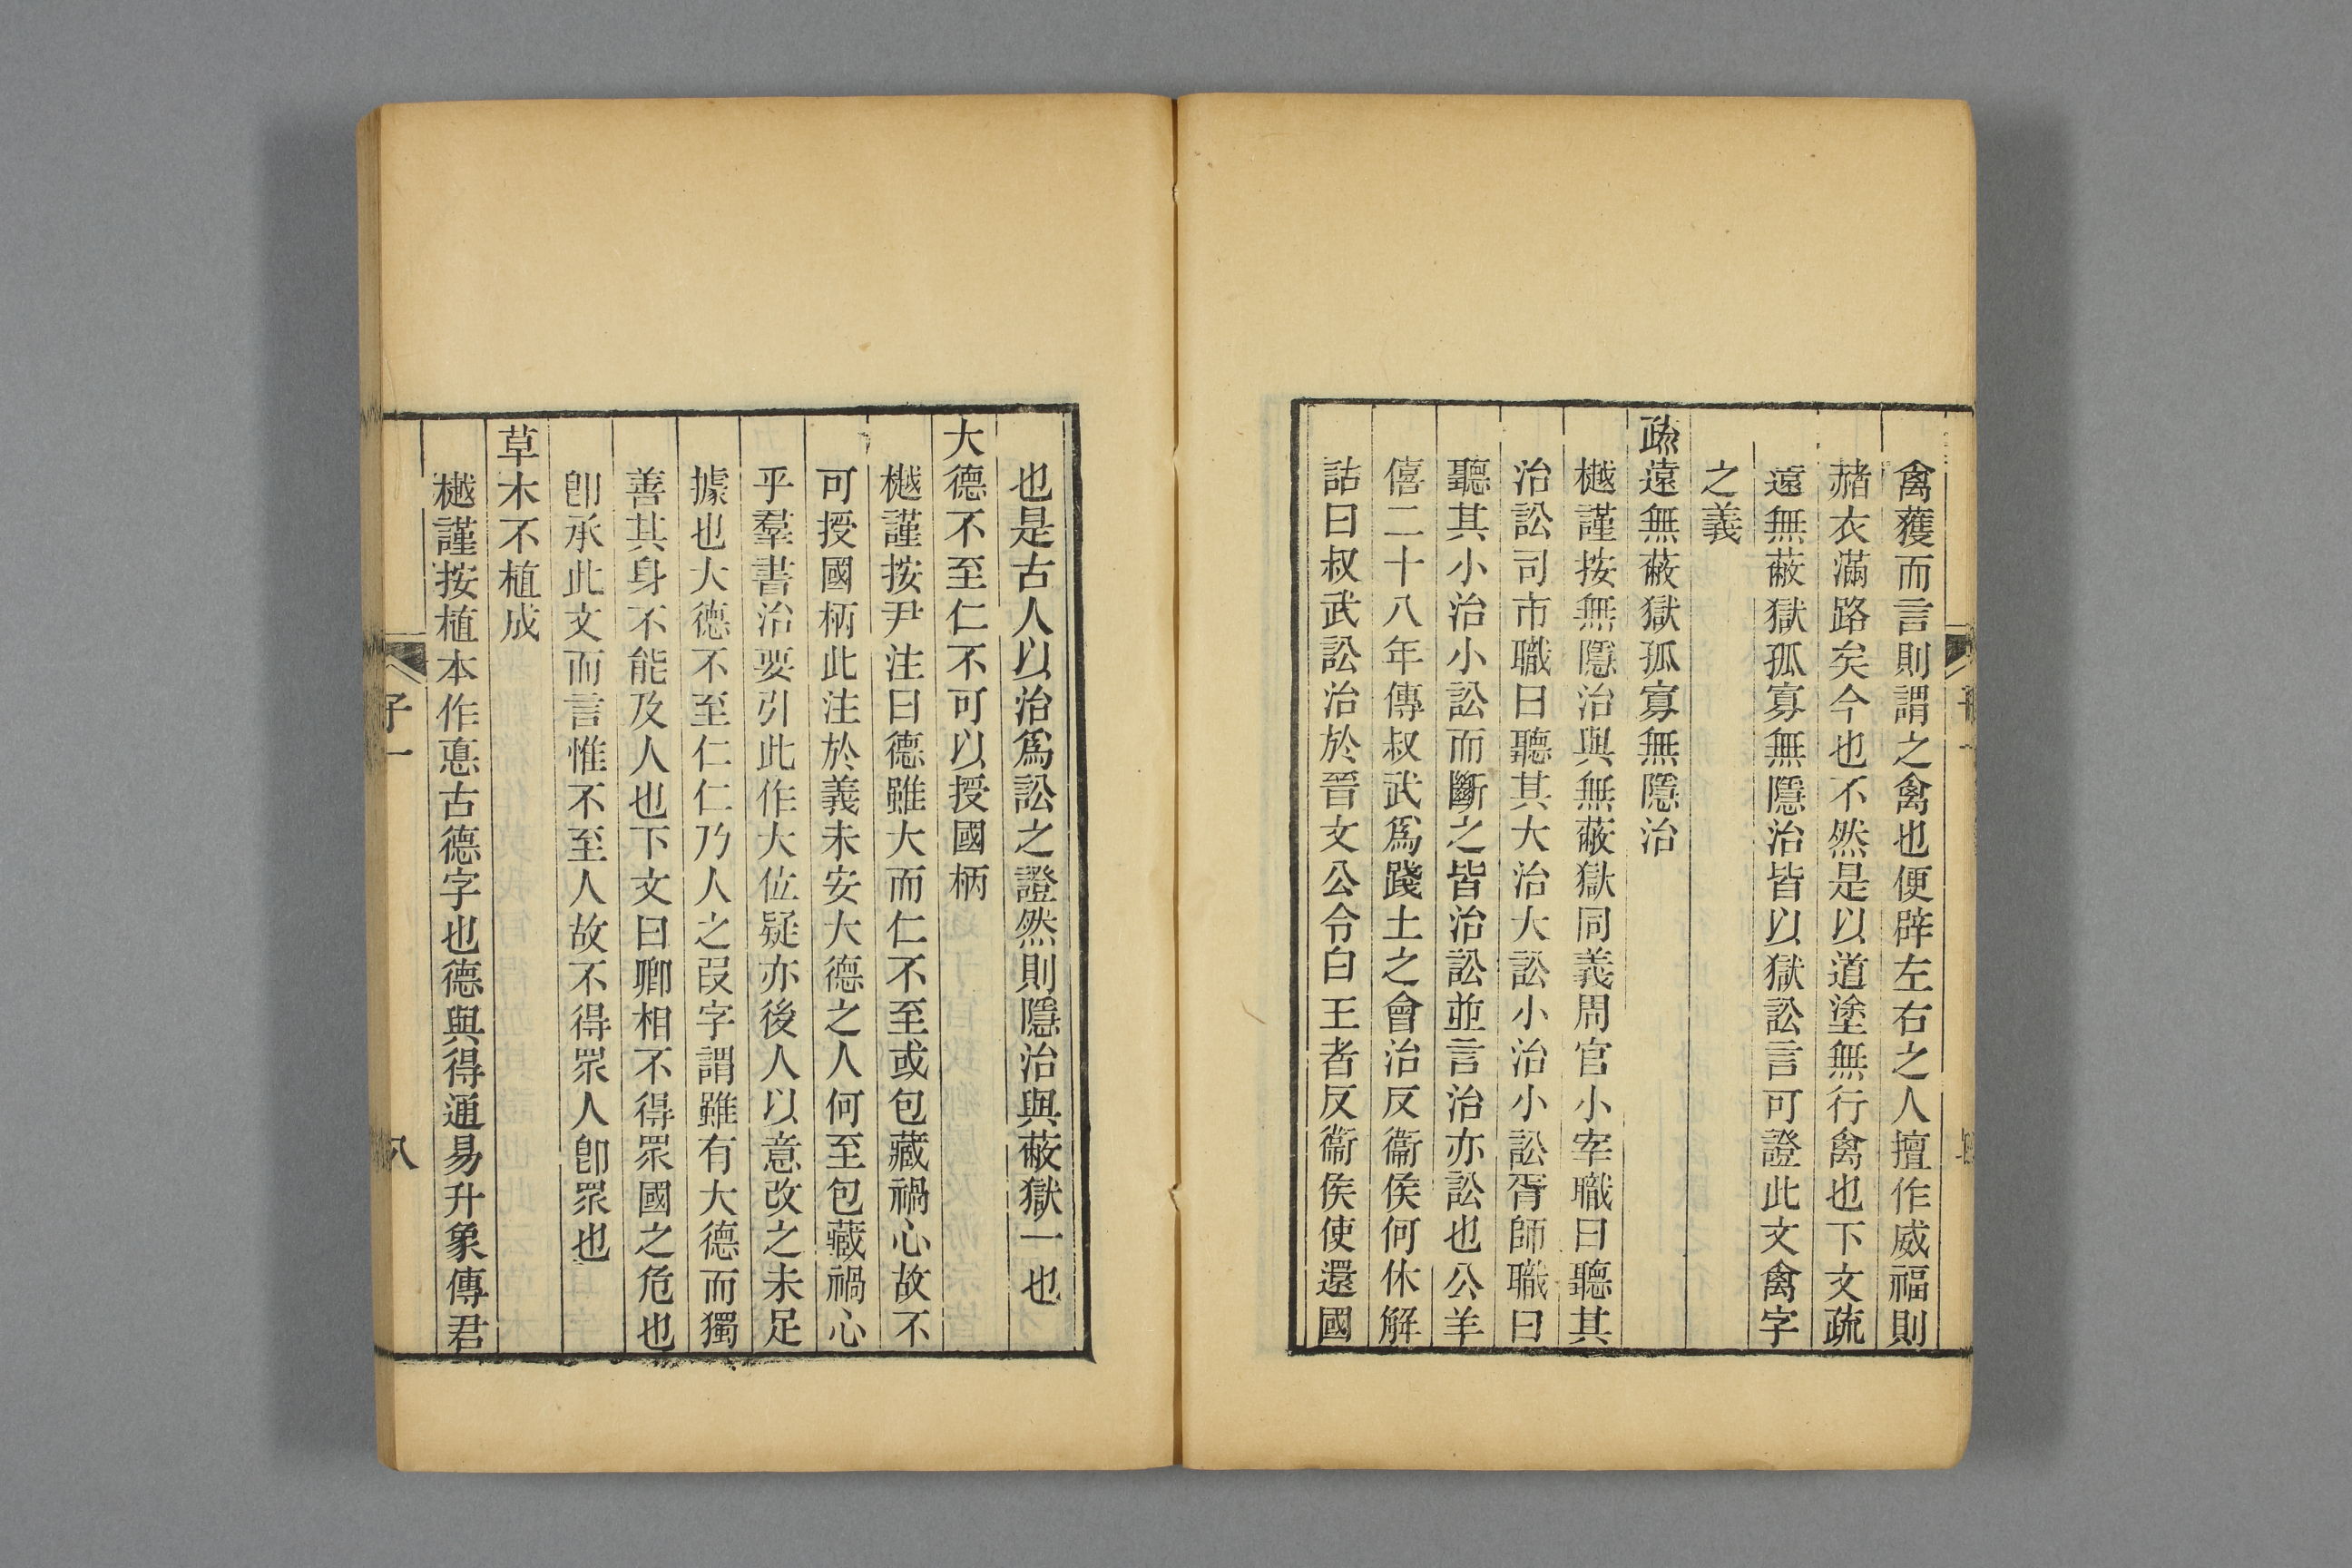 禽獲而言則謂之禽也便辟左右之人擅作威福則
赭衣滿路矣今也不然是以道塗無行禽也下文疏
遠無蔽獄孤寡無隱治皆以獄訟言可證此文禽字
之義
疏遠無蔽獄孤寡無隱治
樾謹按無隱治與無蔽獄同義周官小宰職曰聽其
治訟司市職曰聽其大治大訟小治小訟胥師職曰
聽其小治小訟而斷之皆治訟並言治亦訟也公羊
僖二十八年傳叔武爲踐土之會治反衞侯何休解
詁曰叔武訟治於晉文公令白王者反衞侯使還國
也是古人以治爲訟之證然則隱治與蔽獄一也
大德不至仁不可以授國柄
樾謹按尹注曰德雖大而仁不至或包藏禍心故不
可授國柄此注於義未安大德之人何至包藏禍心
乎羣書治要引此作大位疑亦後人以意改之未足
據也大德不至仁仁乃人之叚字謂雖有大德而獨
善其身不能及人也下文曰卿相不得眾國之危也
卽承此文而言惟不至人故不得眾人卽眾也
草木不植成
樾謹按植本作悳古德字也德與得通易升象傳君
子一
八